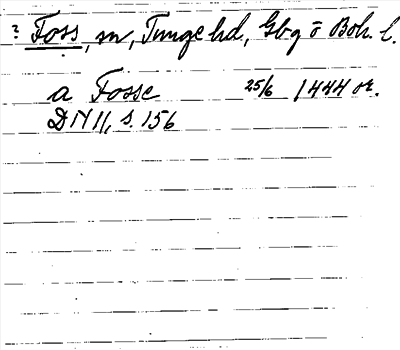 ? Foss, m, Tunge hd, Gbg o Boh. l.
a Fosse 25/6 1444 or.
DN II, s. 156